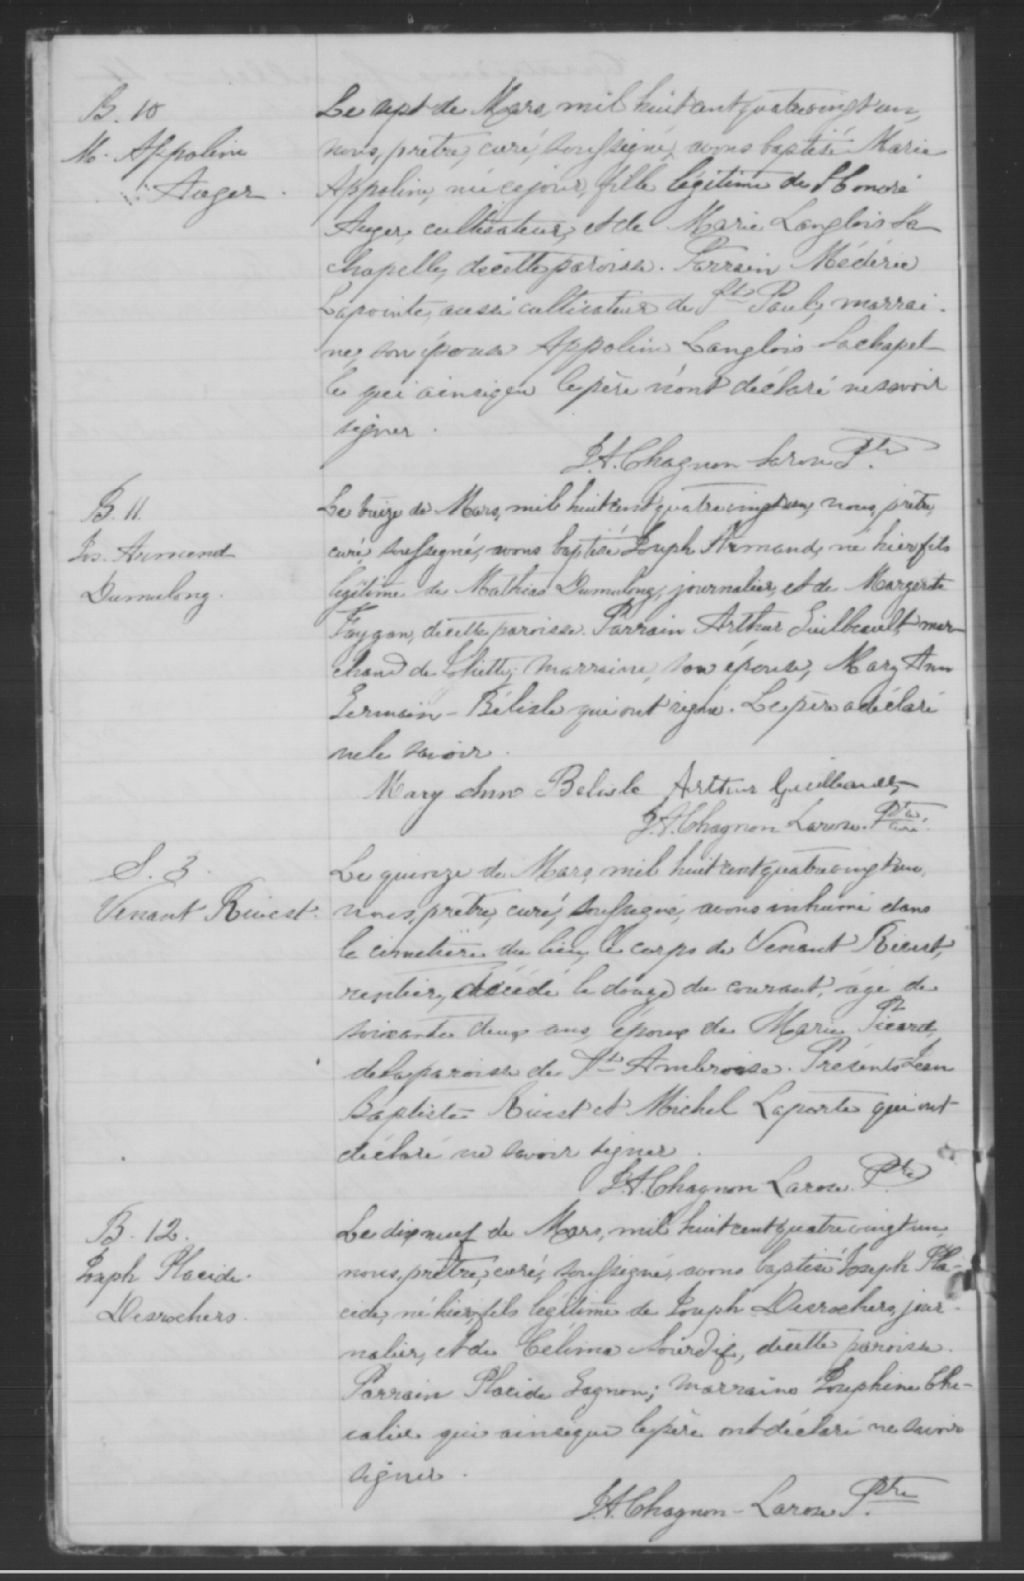 B. 10
M. Appoline
Auger.
Le sept de Mars, mil huit cent quatrevingt un,
nous, prêtre, curé, soussigné, avons baptisé Marie
Appoline, née ce jour, fille légitime de Honoré
Auger, cultivateur, et de Marie Langlois La
chapelle, de cette paroisse. Parrain Médéric
Lapointe, aussi cultivateur de St Paul, marrai-
ne, son épouse Appoline Langlois Lachapel
le qui ainsi que le père n'ont déclaré ne savoir
signer.
J.A. Chagnon Larose Ptr.
B. 11.
Jos. Armand
Dumulong.
Le treize de Mars, mil huit cent quatrevingt un, nous, prêtre,
curé soussigné, avons baptisé Joseph Armand, né hier, fils
légitime de Mathias Dumulong, journalier, et de Margerite
Faygan, de cette paroisse. Parrain Arthur Guilbeault mar-
chand de Joliette, marraine, son épouse, Mary Ann
Germain-Bélisle qui ont signé. Le père a déclaré
ne le savoir.
Mary Ann Belisle Arthur Guilbeault
J.A. Chagnon Larose. Ptre Curé.
S. 3.
Venant Rivest.
Le quinze de Mars, mil huit cent quatrevingt un,
nous, prêtre, curé, soussigné, avons inhumé dans
le cimetière du lieu, le corps de Venant Rivest,
rentier, décédé le douze du courant, âgé de
soixante deux ans, époux de Marie Picard,
de la paroisse de St Ambroise. Présents Jean
Baptiste Rivest et Michel Laporte qui ont
déclaré ne savoir signer.
J.A. Chagnon Larose. Ptre
B. 12.
Joseph Placide.
Desrochers.
Le dixneuf de Mars, mil huit cent quatrevingt un,
nous, prêtre, curé, soussigné, avons baptisé Joseph Pla-
cide, né hier, fils légitime de Joseph Desrochers, jour-
nalier, et de Célima Lourdif, de cette paroisse.
Parrain Placide Gagnon; marraine Josephine Che-
valier qui ainsi que le père ont déclaré ne savoir
signer.
J.A. Chagnon-Larose Ptre.